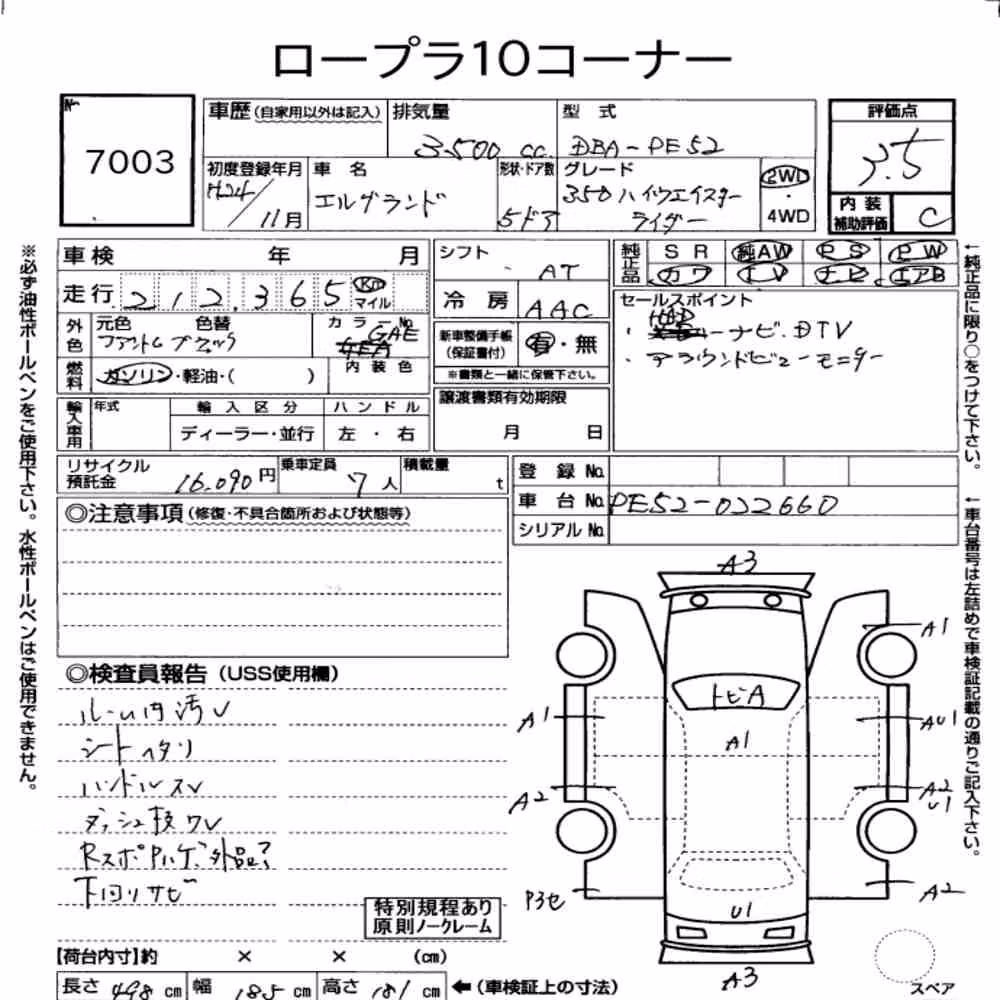 ロープラ10コーナー
No.
7003
車歴(自家用以外は記入)
排気量
3500 cc
型 式
DBA-PE52
評価点
3.5
初度登録年月
H24/11月
車 名
エルグランド
形状・ドア数
5ドア
グレード
350ハイウェイスター
ライダー
2WD
・
4WD
内 装
補助評価
C
車検 年 月
走行 212,365 Km
マイル
シフト
AT
純正品
SR 純AW PS PW
カワ TV ナビ エアB
冷 房
AAC
セールスポイント
・HDDナビ.DTV
・アラウンドビューモニター
外色
元色 色替
ファントムブラック
カラーNo.
GAE
内 装 色
新車整備手帳
(保証書付)
有・無
※書類と一緒に保管下さい。
燃料
ガソリン・軽油・( )
輸入車用
年式
輸 入 区 分
ディーラー・並行
ハ ン ド ル
左 ・ 右
譲渡書類有効期限
月 日
リサイクル
預託金
16,090円
乗車定員
7人
積載量
t
登 録 No.
車 台 No.
PE52-022660
シリアル No.
◎注意事項(修復・不具合箇所および状態等)
◎検査員報告(USS使用欄)
ルーム内汚レ
シートヘタリ
ハンドルスレ
ダッシュ枝ワレ
下回リサビ
特別規程あり
原則ノークレーム
A3
A1
トビA
A1
AU1
A1
A2
A2
U1
P3セ
A2
U1
A3
スペア
【荷台内寸】約 × × (cm)
長さ 498 cm 幅 185 cm 高さ 181 cm
←(車検証上の寸法)
※必ず油性ボールペンをご使用下さい。水性ボールペンはご使用できません。
←純正品に限り○をつけて下さい。
←車台番号は左詰めで車検証記載の通りご記入下さい。